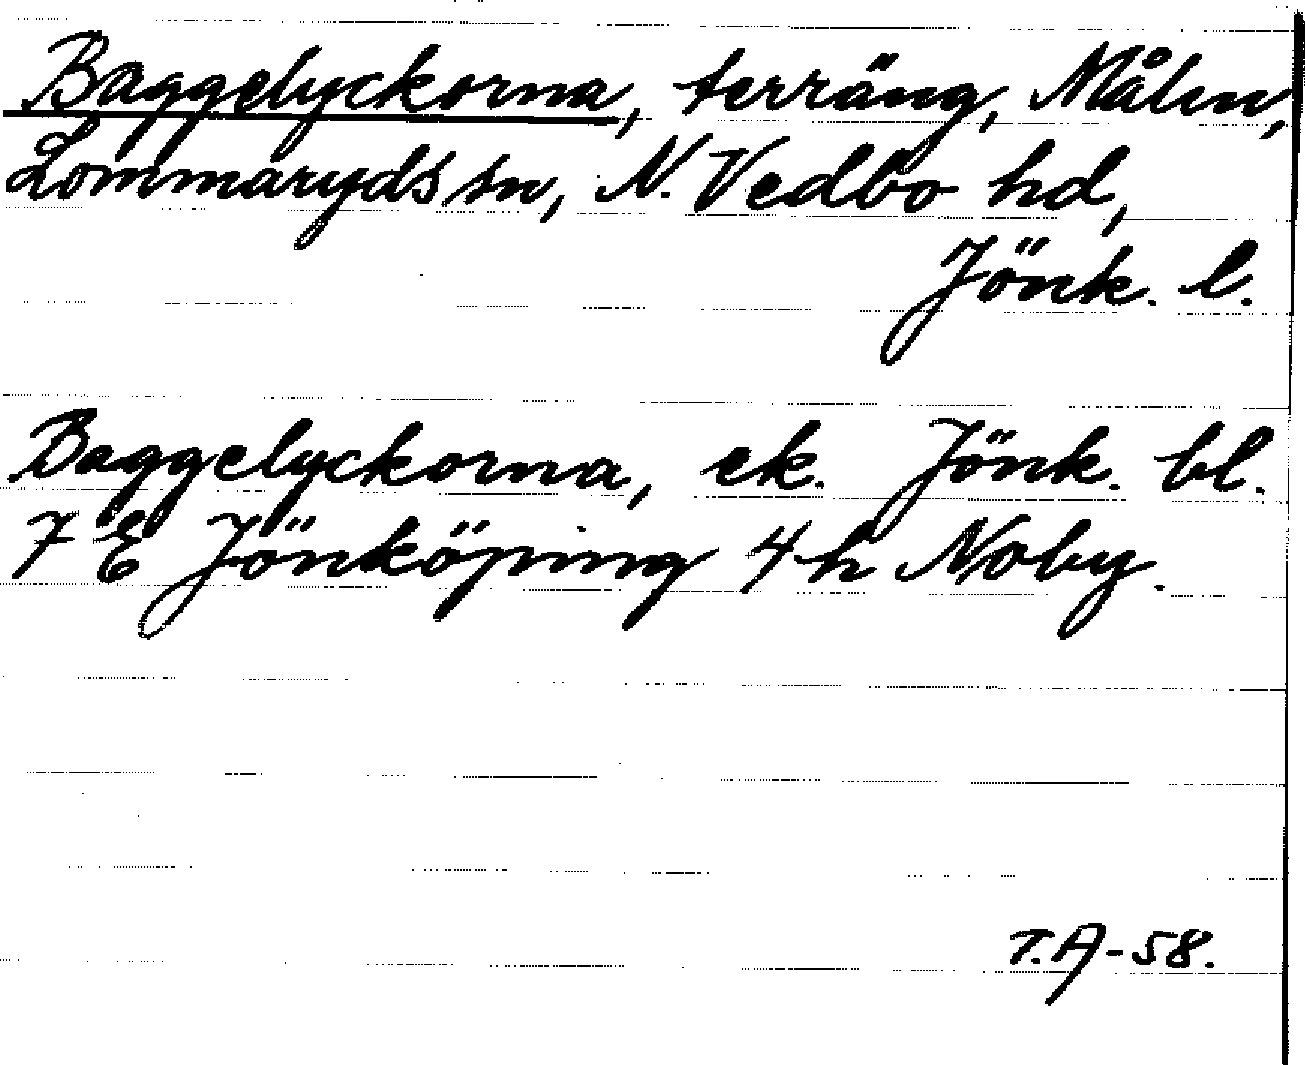 Baggelyckorna, terräng, Målen,
Lommaryds sn, N. Vedbo hd,
Jönk. l.
Baggelyckorna, ek. Jönk. bl.
7 E Jönköping 4 h Noby.
T.A-58.